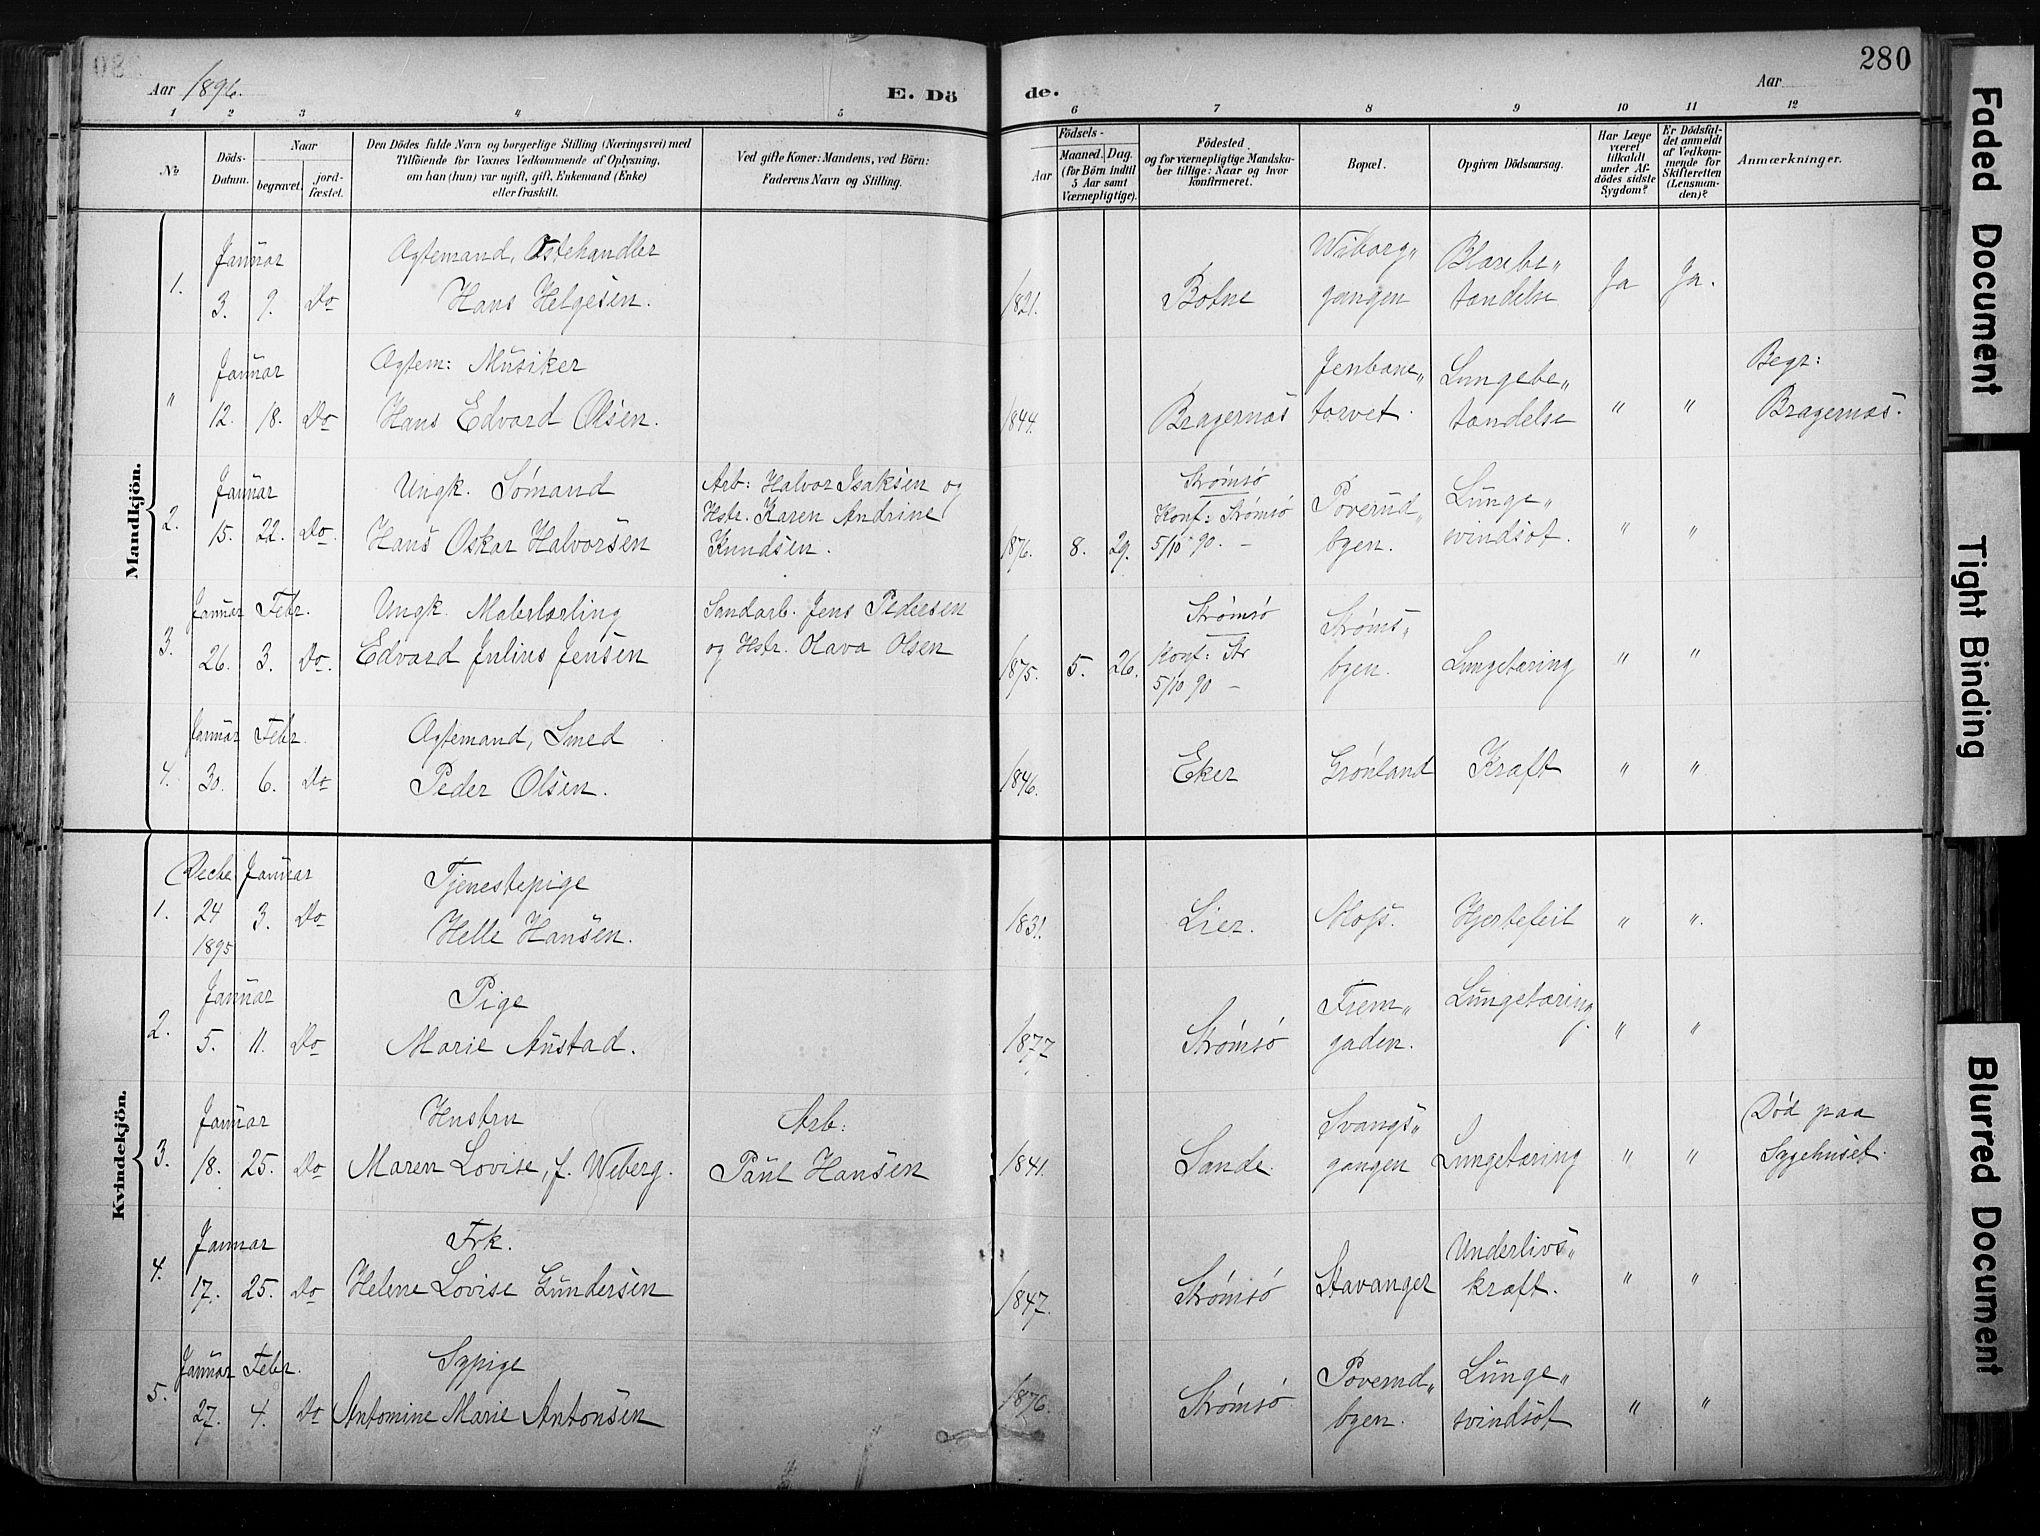 280
Aar 1896.
E. Dö
de.
Aar
1 2 3 4 5
6 7 8 9 10 11 12
No
Döds-Datum.
Naar
begravet.
jord-fæstet.
Den Dödes fulde Navn og borgerlige Stilling (Næringsvei) med
Tilföiende for Voxnes Vedkommende af Oplysning,
om han (hun) var ugift, gift, Enkemand (Enke)
eller fraskilt.
Ved gifte Koner: Mandens, ved Börn:
Faderens Navn og Stilling.
Födsels-
Aar
Maaned. Dag.
(for Börn indtil
5 Aar samt
Værnepligtige).
Födested
og for værnepligtige Mandska-
ber tillige: Naar og hvor
konfirmeret.
Bopæl.
Opgiven Dödsaarsag.
Har Læge
været
tilkaldt
under Af-
dödes sidste
Sygdom?
Er Dödsfal-
det anmeldt
af Vedkom-
mende for
Skifteretten
(Lensman-
den)?
Anmærkninger.
Mandkjön.
Januar Ægtemand, Ostehandler Wiborg„ Blærebe„
1. 3. 9. Do Hans Helgesen. 1821. Botne gangen tændelse Ja Ja.
Januar Ægtem: Musiker Jenbane„ Lungebe„ Begr:
" 12. 18. Do Hans Edvard Olsen. 1844. Bragernæs torvet. tændelse " " Bragernæs.
Januar Ungk. Sømand Arb: Halvor Isaksen og Strømsø Poverud„ Lunge„
2. Hstr. Karen Andrine Konf: Strømsø
15. 22. Do. Hans Oskar Halvorsen Knudsen. 1876. 8. 29. 5/10 90. – byen. svindsot. " "
Januar Febr. Ungk. Malerlærling Sandarb. Jens Pedersen Strømsø Strøms„
3. 26. 3. Do. Edvard Julius Jensen og Hstr. Olava Olsen 1875. 5. 26. Konf: Str byen. Lungetæring " "
5/10 90 –
Januar Febr. Ægtemand, Smed
4. 30. 6. Do Peder Olsen. 1846. Eker Grønland Kræft " "
Kvindekjön.
Decbe. Januar Tjenestepige
1. 24 3. Do Helle Hansen. 1831. Lier. Moss. Hjertefeil " ".
1895
Januar Pige Frem„ Lungetæring.
2. 5. 11. Do Marie Austad. 1877 Strømsø gaden. " "
Januar Hustru Arb: Svangs„ Død paa
3. 18. 25. Do Maren Lovise, f. Weberg. Paul Hansen 1841. Sande. gangen Lungetæring " " Sygehuset.
Januar Frk. Underlivs„
4. 17. 25. Do Helene Lovise Gundersen 1847. Strømsø Stavanger kræft. " "
Januar Febr. Sypige Poverud„ Lunge„
5. 27. 4. Do Antomine Marie Antonsen 1876. Strømsø byen. svindsot " "
Faded Document
Tight Binding
Blurred Document